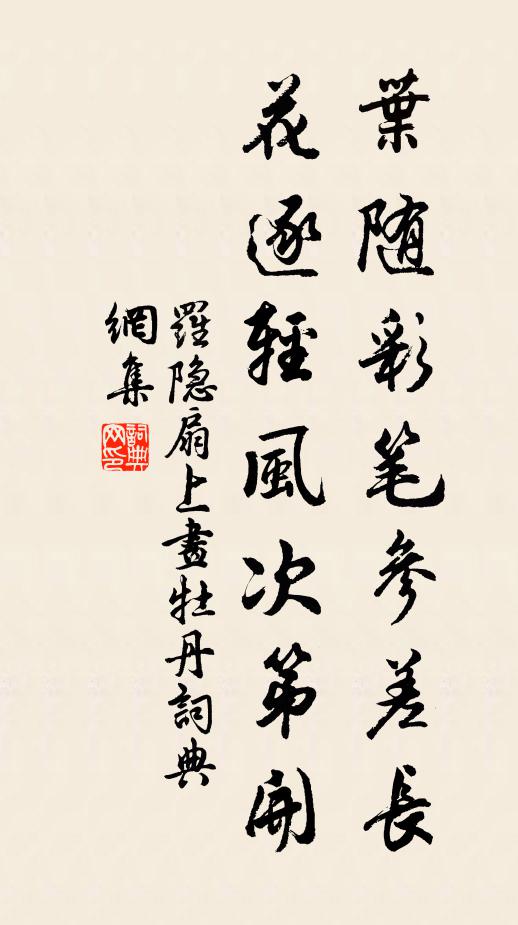 葉随彩笔參差長
花逐輕風次第開
羅隐扇上畫牡丹詞典
網集
詞典
网印